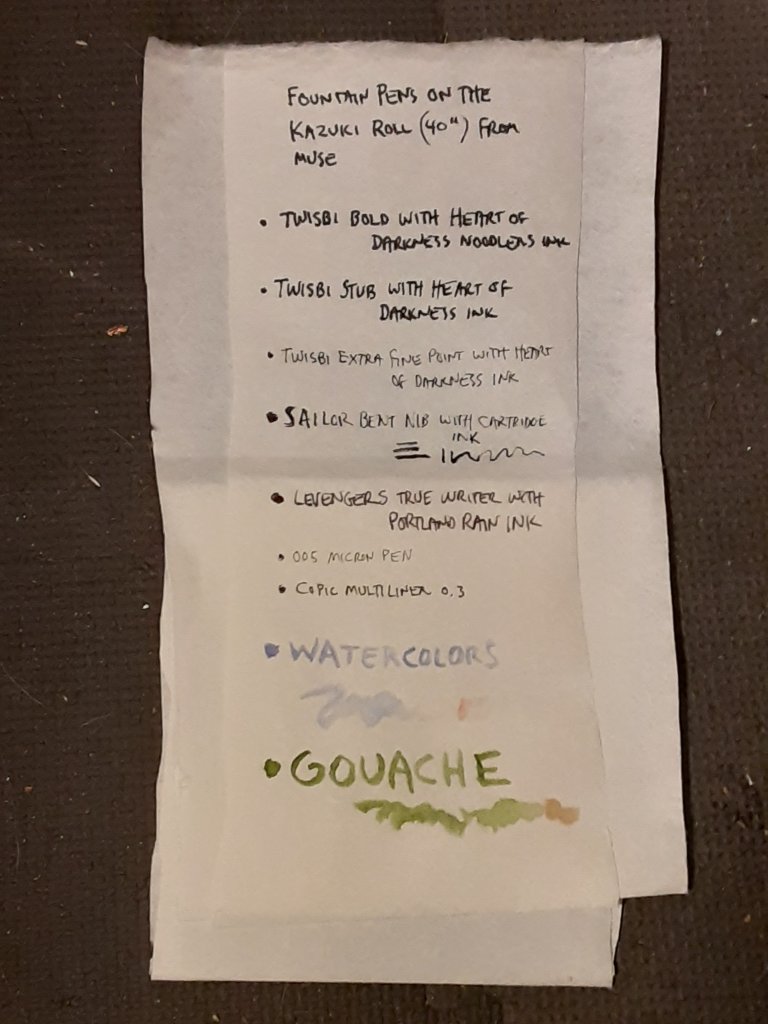 FOUNTAIN PENS ON THE
KAZUKI ROLL (40") FROM
MUSE
• TWISBI BOLD WITH HEART OF
DARKNESS NOODLERS INK
• TWISBI STUB WITH HEART OF
DARKNESS INK
• TWISBI EXTRA FINE POINT WITH HEART
OF DARKNESS INK
• SAILOR BENT NIB WITH CARTRIDGE
INK
• LEVENGERS TRUE WRITER WITH
PORTLAND RAIN INK
• 005 MICRON PEN
• COPIC MULTILINER 0.3
• WATERCOLORS
• GOUACHE